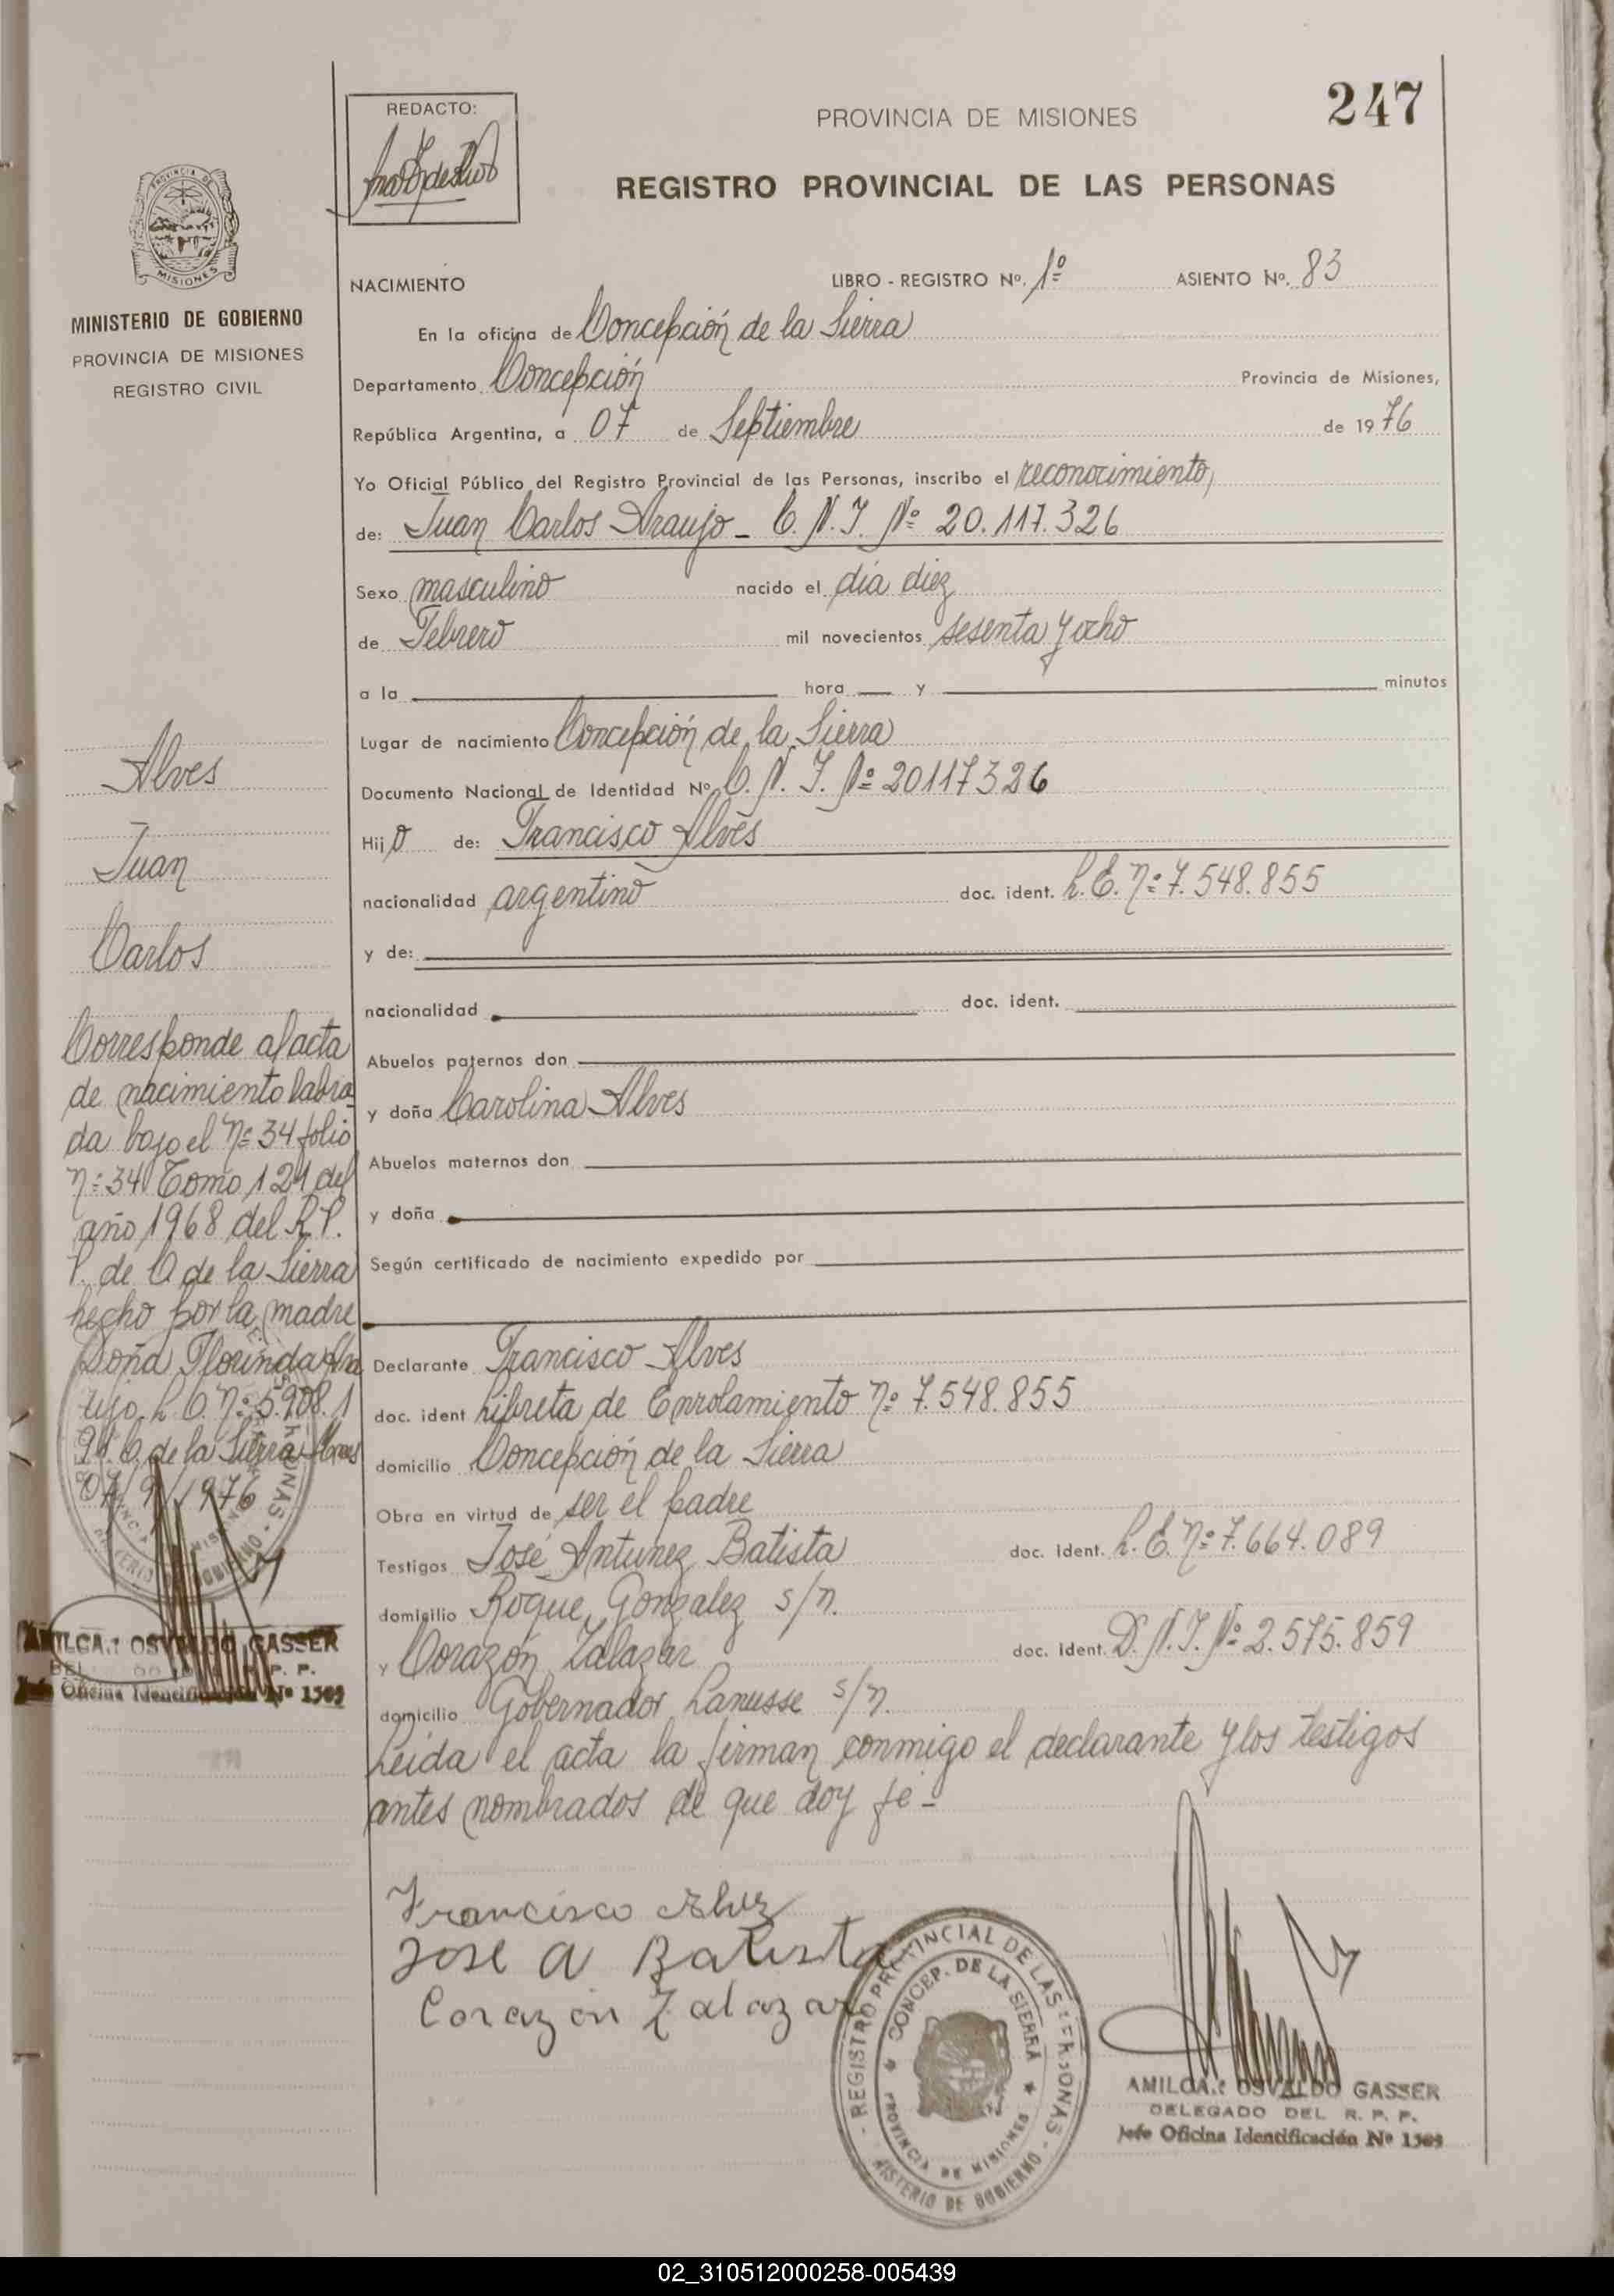 247
REDACTO:
PROVINCIA DE MISIONES
REGISTRO PROVINCIAL DE LAS PERSONAS
PROVINCIA DE
MISIONES
MINISTERIO DE GOBIERNO
PROVINCIA DE MISIONES
REGISTRO CIVIL
NACIMIENTO LIBRO - REGISTRO Nº. 1º ASIENTO Nº. 83
En la oficina de Concepción de la Sierra
Departamento Concepción Provincia de Misiones,
República Argentina, a 07 de Septiembre de 1976
Yo Oficial Público del Registro Provincial de las Personas, inscribo el reconocimiento,
de: Juan Carlos Araujo - C. N. I. Nº 20.117.326
Sexo masculino nacido el día diez
de Febrero mil novecientos sesenta y ocho
a la hora y minutos
Lugar de nacimiento Concepción de la Sierra
Documento Nacional de Identidad Nº C. N. I. Nº 20117326
Hijo de: Francisco Alves
nacionalidad argentino doc. ident. L.E. Nº 7.548.855
y de:
nacionalidad doc. ident.
Abuelos paternos don
y doña Carolina Alves
Abuelos maternos don
y doña
Según certificado de nacimiento expedido por
Declarante Francisco Alves
doc. ident Libreta de Enrolamiento Nº 7.548.855
domicilio Concepción de la Sierra
Obra en virtud de ser el padre
Testigos José Antunez Batista doc. Ident. L.E. Nº 7.664.089
domicilio Roque Gonzalez s/n.
y Corazón Zalazar doc. Ident. D.N.I. Nº 2.575.859
domicilio Gobernador Lanusse s/n.
Leida el acta la firman conmigo el declarante y los testigos
antes nombrados de que doy fe -
Alves
Juan
Carlos
Corresponde al acta
de nacimiento labra
da bajo el Nº 34 folio
Nº 34 Tomo 121 del
año 1968 del R.P.
P. de C. de la Sierra
hecho por la madre
Doña Florinda Ara
ujo L.C. Nº 5.908.1
91. C. de la Sierra Mnes
07/9/1976
AMILCAR OSVALDO GASSER
R. P. P.
Jefe Oficina Identificación Nº 1505
Francisco Alvez
Jose A Batista
Corazon Zalazar
REGISTRO PROVINCIAL DE LAS PERSONAS - MINISTERIO DE GOBIERNO
CONCEP. DE LA SIERRA
PROVINCIA DE MISIONES
AMILCAR OSVALDO GASSER
DELEGADO DEL R. P. P.
Jefe Oficina Identificación Nº 1505
02_310512000258-005439